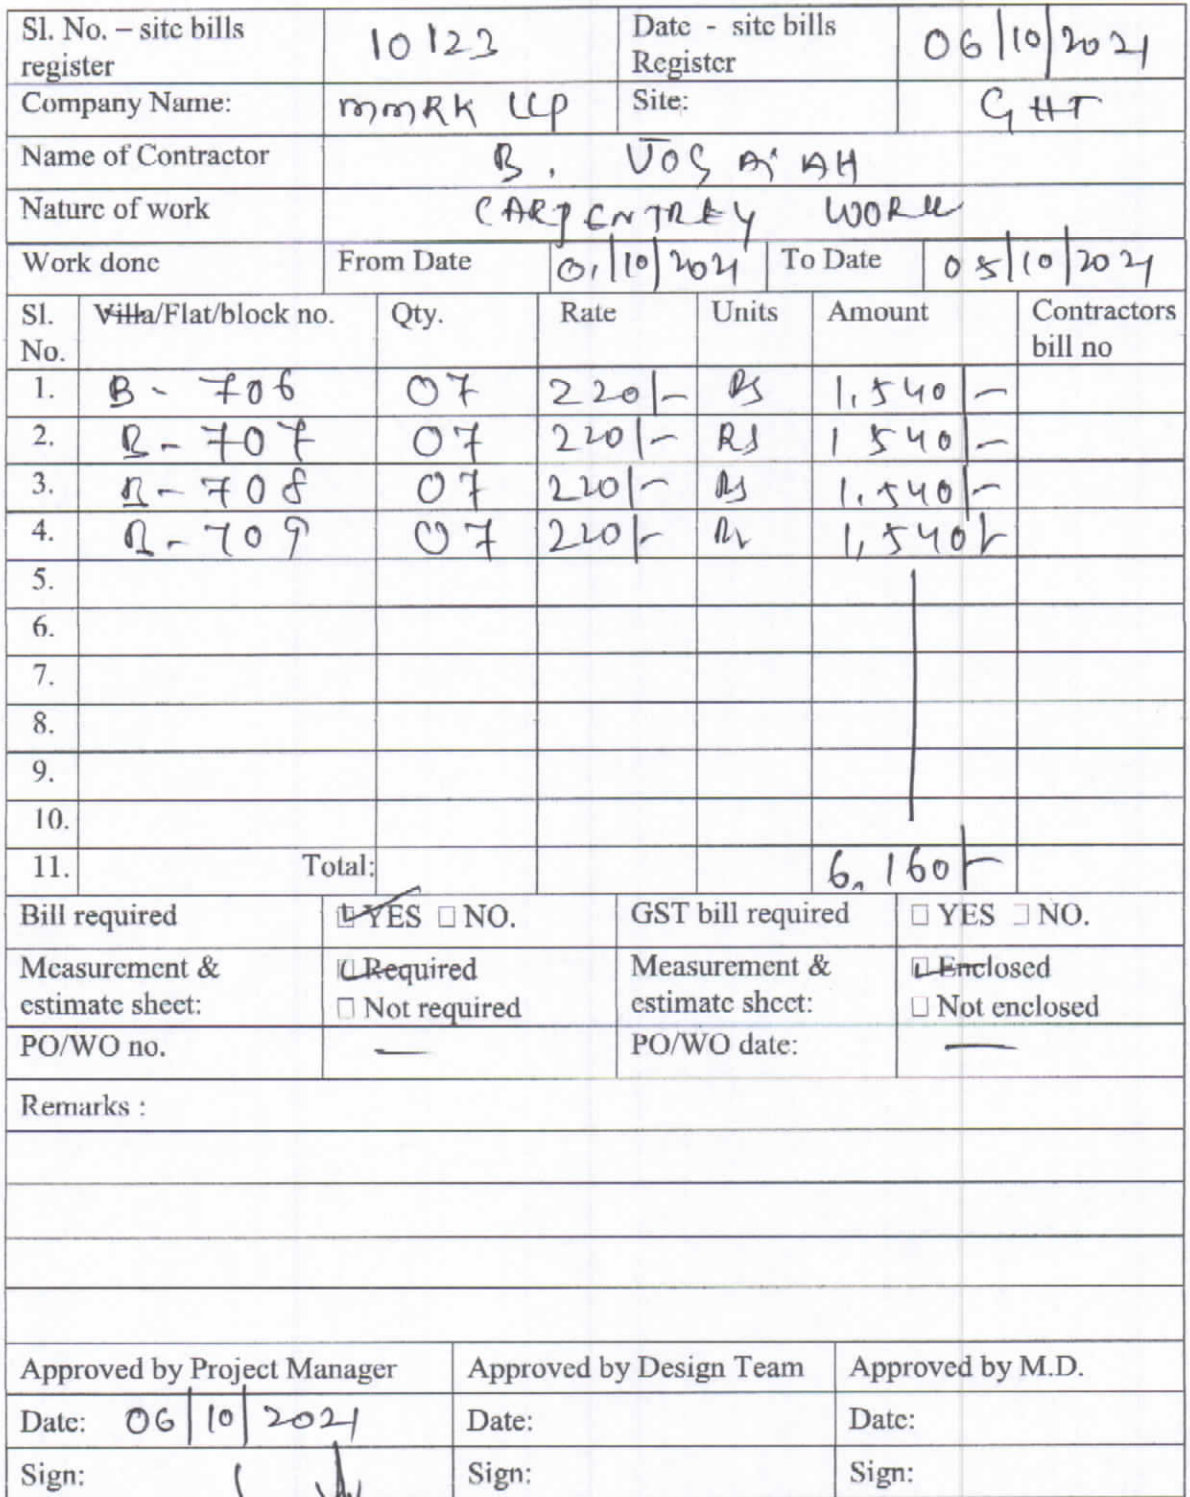 Sl. No. – site bills register 10123 Date - site bills Register 06/10/2021
Company Name: MMRK LLP Site: GHT
Name of Contractor B.
Nature of work CARPENTREY WORK
Work done From Date 01/10/2021 To Date 05/10/2021
Sl. No. Villa/Flat/block no. Qty. Rate Units Amount Contractors bill no
1. B - 706 07 220/- Rs 1,540/-
2. B - 707 07 220/- Rs 1 540/-
3. B - 708 07 220/- Rs 1,540/-
4. B - 709 07 220/- Rs 1,540/-
5.
6.
7.
8.
9.
10.
11. Total: 6,160/-
Bill required YES NO. GST bill required YES NO.
Measurement & estimate sheet: Required Measurement & estimate sheet: Enclosed
Not required Not enclosed
PO/WO no. — PO/WO date: —
Remarks :
Approved by Project Manager Approved by Design Team Approved by M.D.
Date: 06/10/2021 Date: Date:
Sign: Sign: Sign: